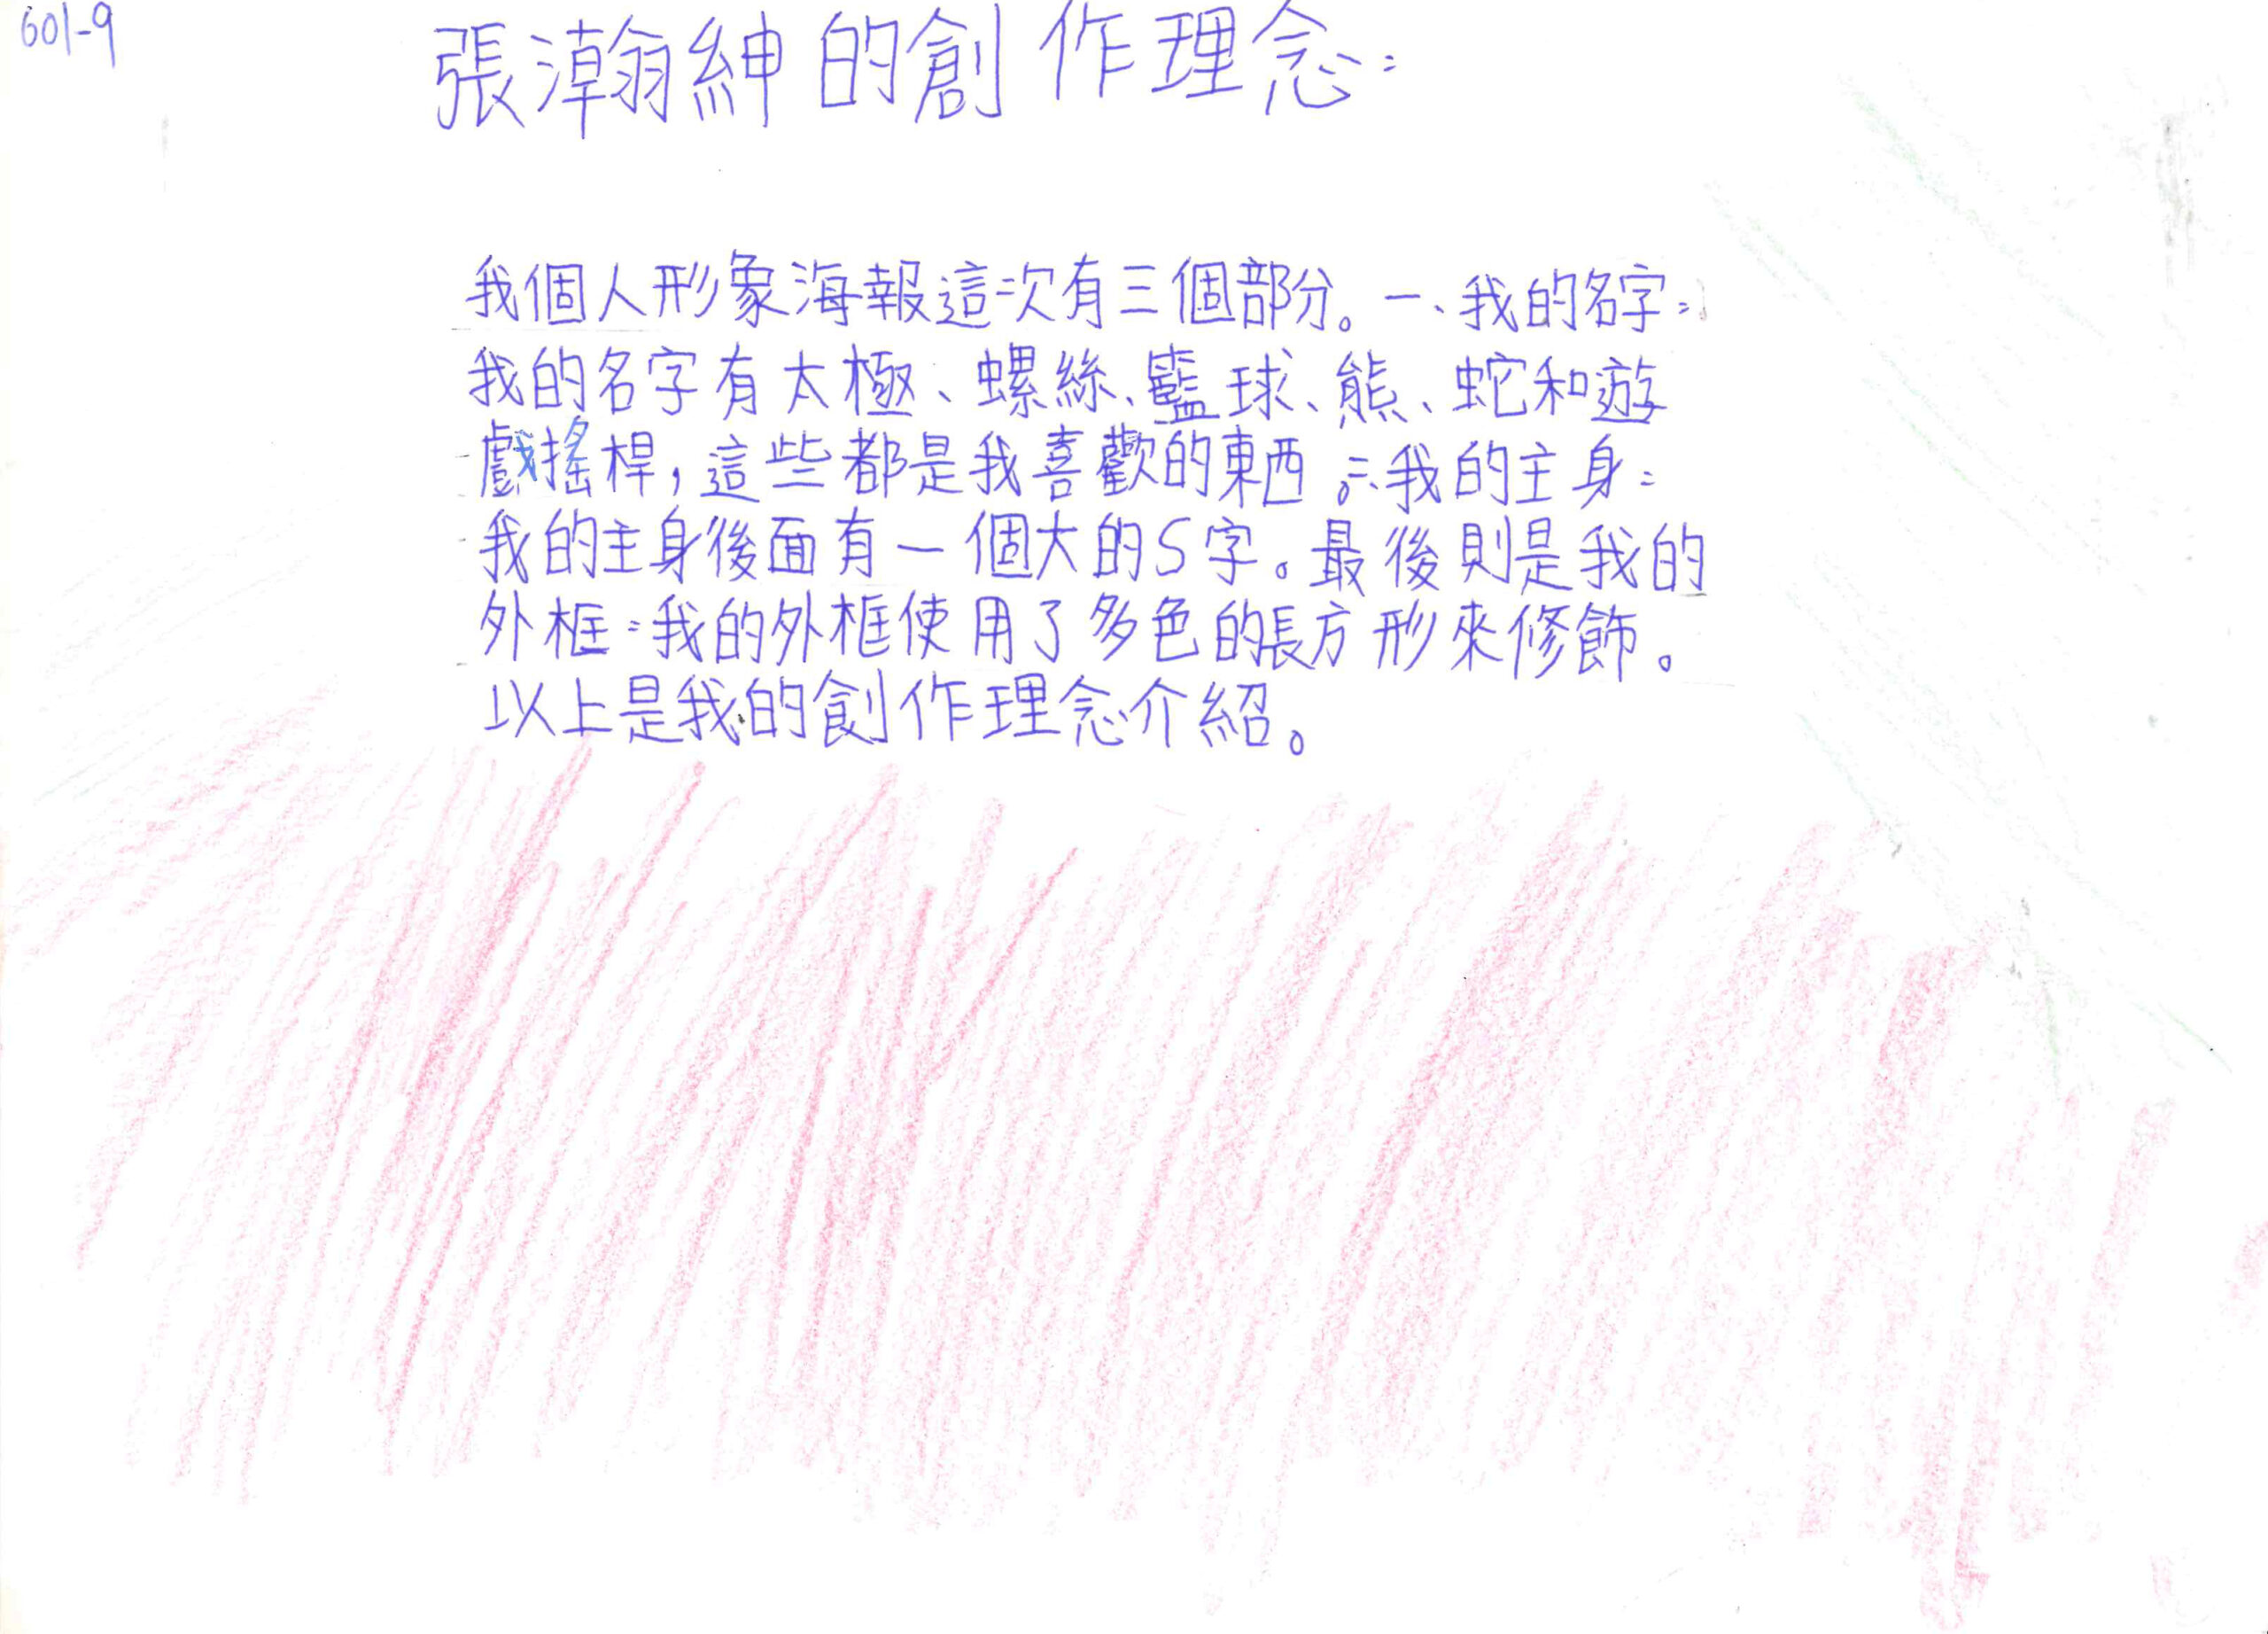 601-9
張瀚紳的創作理念:
我個人形象海報這次有三個部分。一、我的名字:
我的名字有太極、螺絲、籃球、熊、蛇和遊
戲搖桿,這些都是我喜歡的東西。二、我的主身:
我的主身後面有一個大的S字。最後則是我的
外框:我的外框使用了多色的長方形來修飾。
以上是我的創作理念介紹。